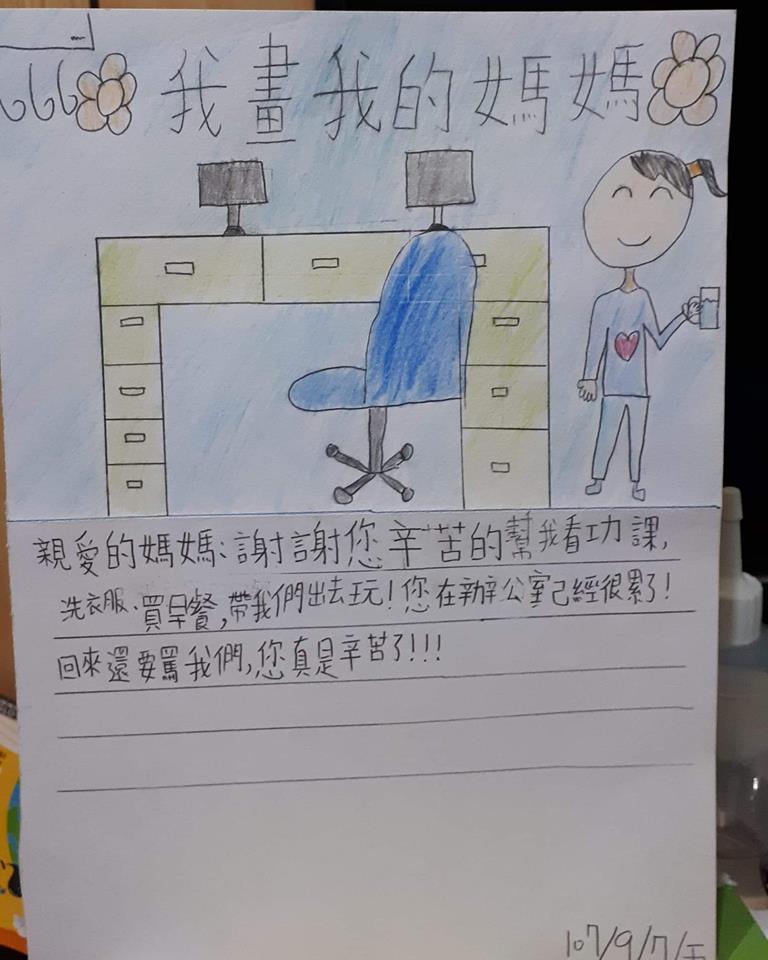 我畫我的媽媽
親愛的媽媽:謝謝您辛苦的幫我看功課,
洗衣服、買早餐,帶我們出去玩!您在辦公室己經很累了!
回來還要罵我們,您真是辛苦了!!!
107/9/7/五